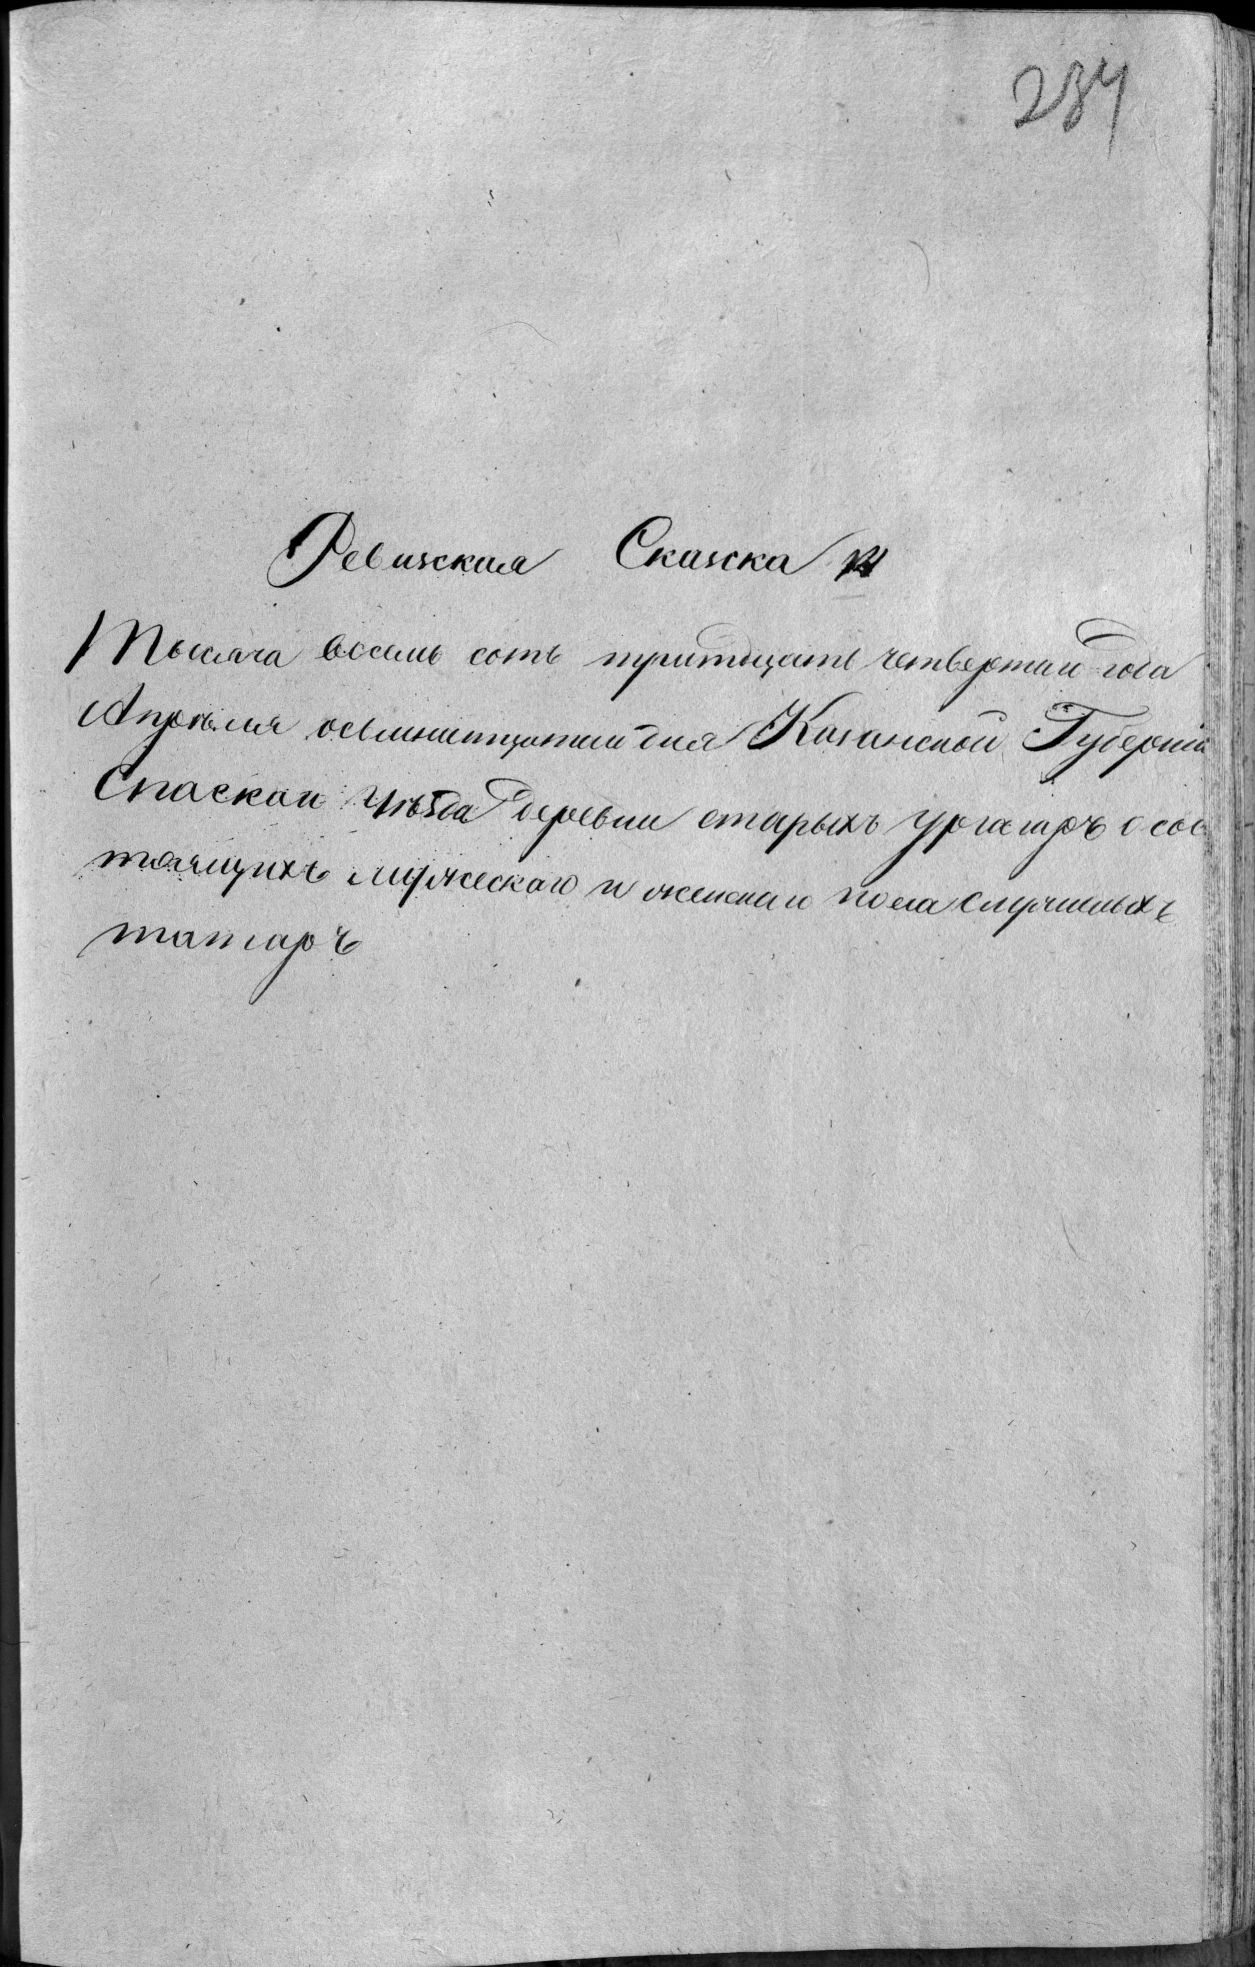 284
Ревизская Сказка
Тысяча восемь сотъ тритцать четвертаи года
Апрѣля осьмнатцатаи дня Казанской Губерніи
Спаскаи уѣзда деревни старыхъ ургагаръ о сос
тоящихъ мужескаго и женскаго пола служилыхъ
татаръ